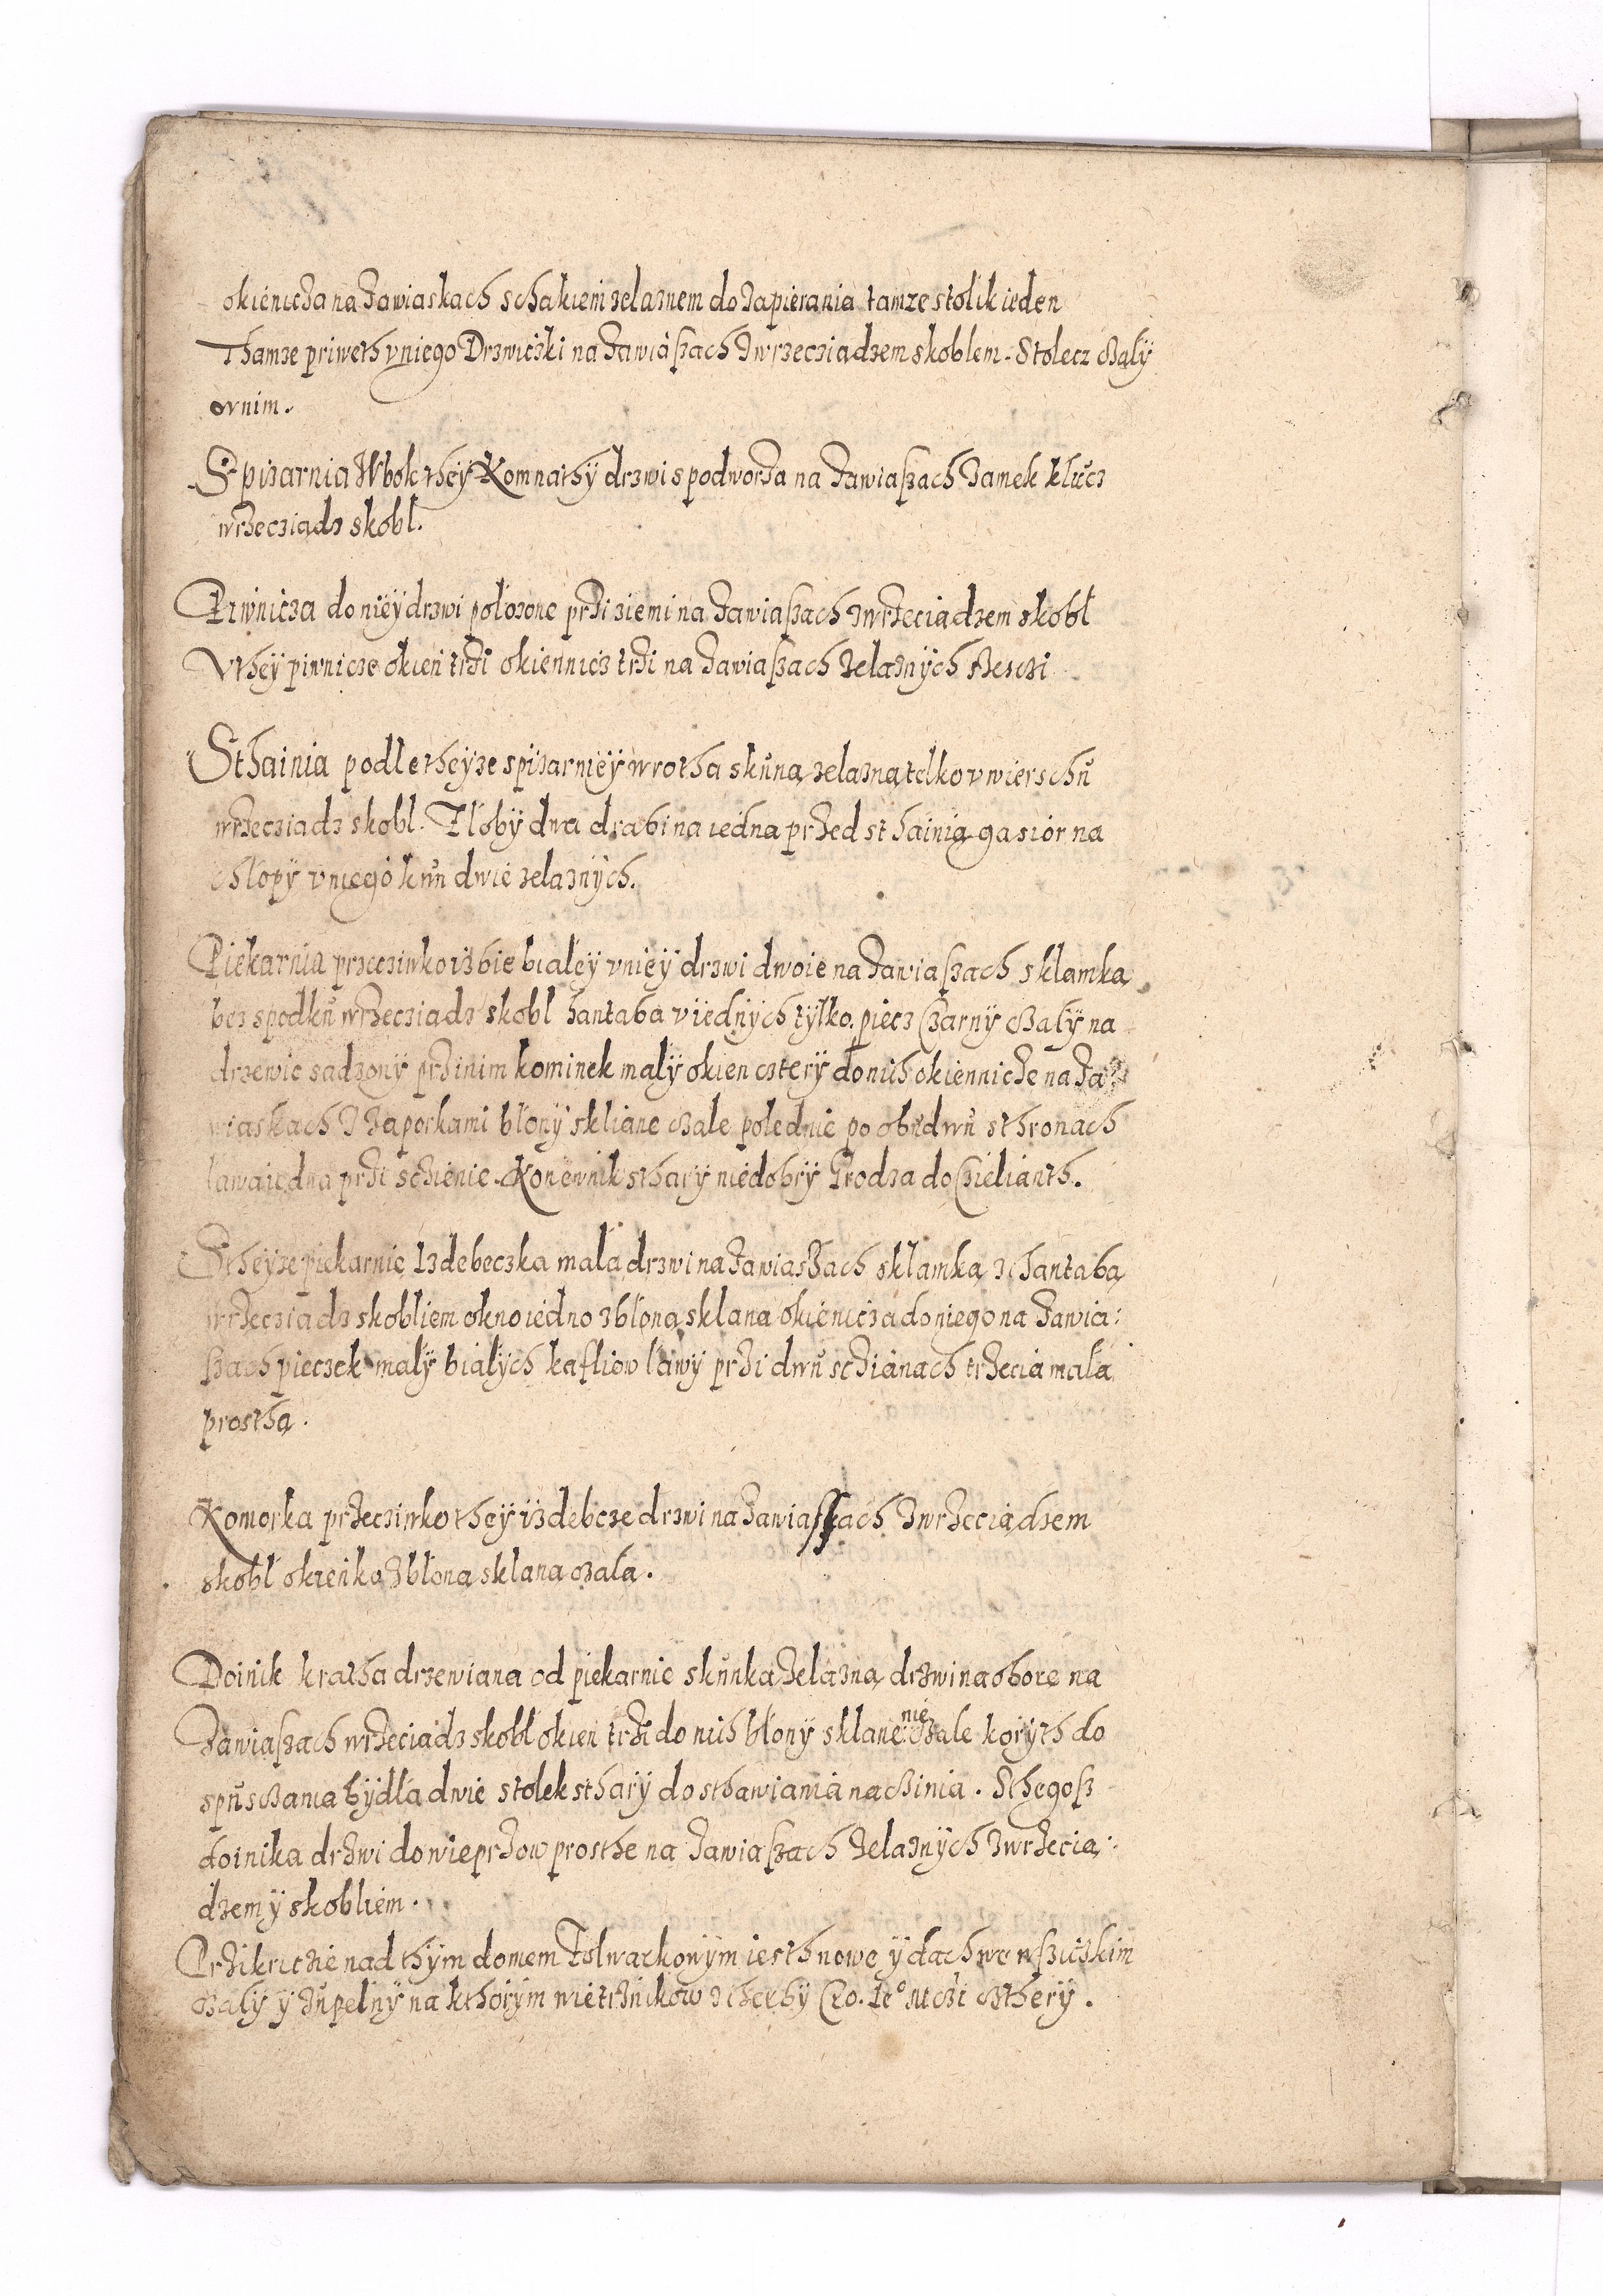 okienicza na zawiaskach schakiem zelaznem do zapierania tamze stolik ieden
Thamze priweth v niego Drzwiczki na zawiaszach z wrzecziadzem skoblem. Stolecz czaly
w nim.
Spizarnia W bok they Komnathÿ drzwi s podworza na zawiaszach zamek klucz
wrzecziadz skobl.
Piwnicza do nieÿ drzwi polozone przi ziemi na zawiaszach z wrzeciadzem skobl
V theÿ piwnicze okien trzi okiennicz trzi na zawiaszach zelaznÿch szesczi
Sthainia podle theÿze spizarnieÿ wrotha s kuną zelazną telko v wierschu
wrzecziadz skobl. Zlobÿ dwa drabina iedna przed sthainią gasior na
chlopÿ v niego kun dwie zelaznÿch.
Piekarnia przecziwko izbie bialeÿ v nieÿ drzwi dwoie na zawiaszach s klamką
bez spodku wrzecziadz skobl hantaba v iednÿch tÿlko. piecz czarnÿ czalÿ na
drzewie sadzonÿ przi nim kominek malÿ okien czterÿ do nich okiennicze na za:
wiaskach z zaporkami blonÿ skliane czale polednie po obudwu sthronach
lawa iedna przi sczienie. Konewnik stharÿ niedobrÿ Grodza do czielianth.
S theÿze piekarnie Izdebeczka mala drzwi na zawiaszach s klamką z chantabą
wrzecziadz skobliem okno iedno z bloną sklaną okienicza do niego na zawia:
szach pieczek malÿ bialÿch kafliow lawÿ przi dwu sczianach trzecia mala
prosthą.
Komorka przecziwko theÿ izdebcze drzwi na zawiaszach z wrzeciadzem
skobl okienko z bloną sklaną czalą.
Doinik kratha drzewiana od piekarnie s kunką zelazną drzwi na obore na
zawiaszach wrzeciadz skobl okien trzi do nich blonÿ sklane nie czale korÿth do
spusczania bÿdla dwie stolek stharÿ do sthawiania naczinia. S thegosz
doinika drzwi do wieprzow prosthe na zawiaszach zelaznÿch z wrzecią:
dzem ÿ skobliem.
Przikriczie nad thÿm domem Folwarkowÿm iesth nowe ÿ dach we wsziczkim
czalÿ ÿ zupelnÿ na kthorÿm wietrznikow z therbÿ czthery.